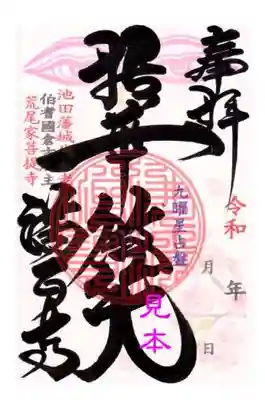 奉拝
令和
年
月
日
九曜星占盤
見本
拈華微笑
池田藩城
伯耆國倉
荒尾家菩提寺